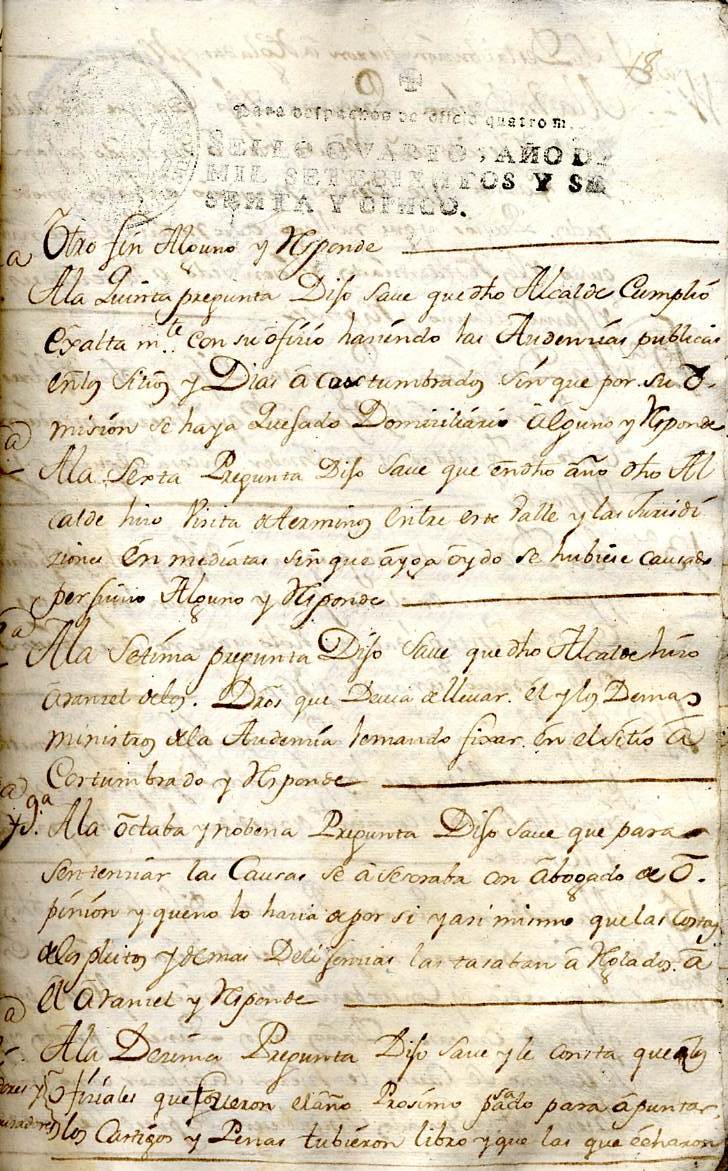 18
Para despachos de oficio quatro m
SELLO QVARTO, AÑO DE
MIL SETECIENTOS Y SE
SENTA Y CINCO.
Otro fin Alguno y Rsponde
a
Ala Quinta pregunta Dijo save que dho Alcalde Cumplió
exalta mte. con su ofizio haziendo las Audenzias publicas
en los Sitios y Dias acostumbrados sin que por su O
misión se haya Quejado Domiziliario Alguno y Rsponde
a
Ala Sexta Pregunta Dijo save que en dho año dho Al
calde hizo Visita de terminos entre este Valle y las Jurisdi
ziones en mediatas sin que aya oydo se hubiese Causado
perjuizio Alguno y Rsponde
a
Ala Setima pregunta Dijo save que dho Alcalde hizo
aranzel delos. Dros que Devia de llevar. el y los Demas
ministros dela Audenzia lomando fixar. en el sitio a
Costumbrado y Rsponde
a
y 9.a
Ala octaba y nobena Pregunta Dijo save que para
sentenziar las Causas se asesoraba con abogado de O.
pinión y que no lo hazia de por si y asi mismo que las costas
delos pleitos y demas Delijenzias las tasaban a Rglados. a
el aranzel y Rsponde
a
Ala Dezima Pregunta Dijo save y le consta que los
ofiziales que fueron el año Prosimo psado para apuntar
los Castigos y Penas tubieron libro y que las que echaron